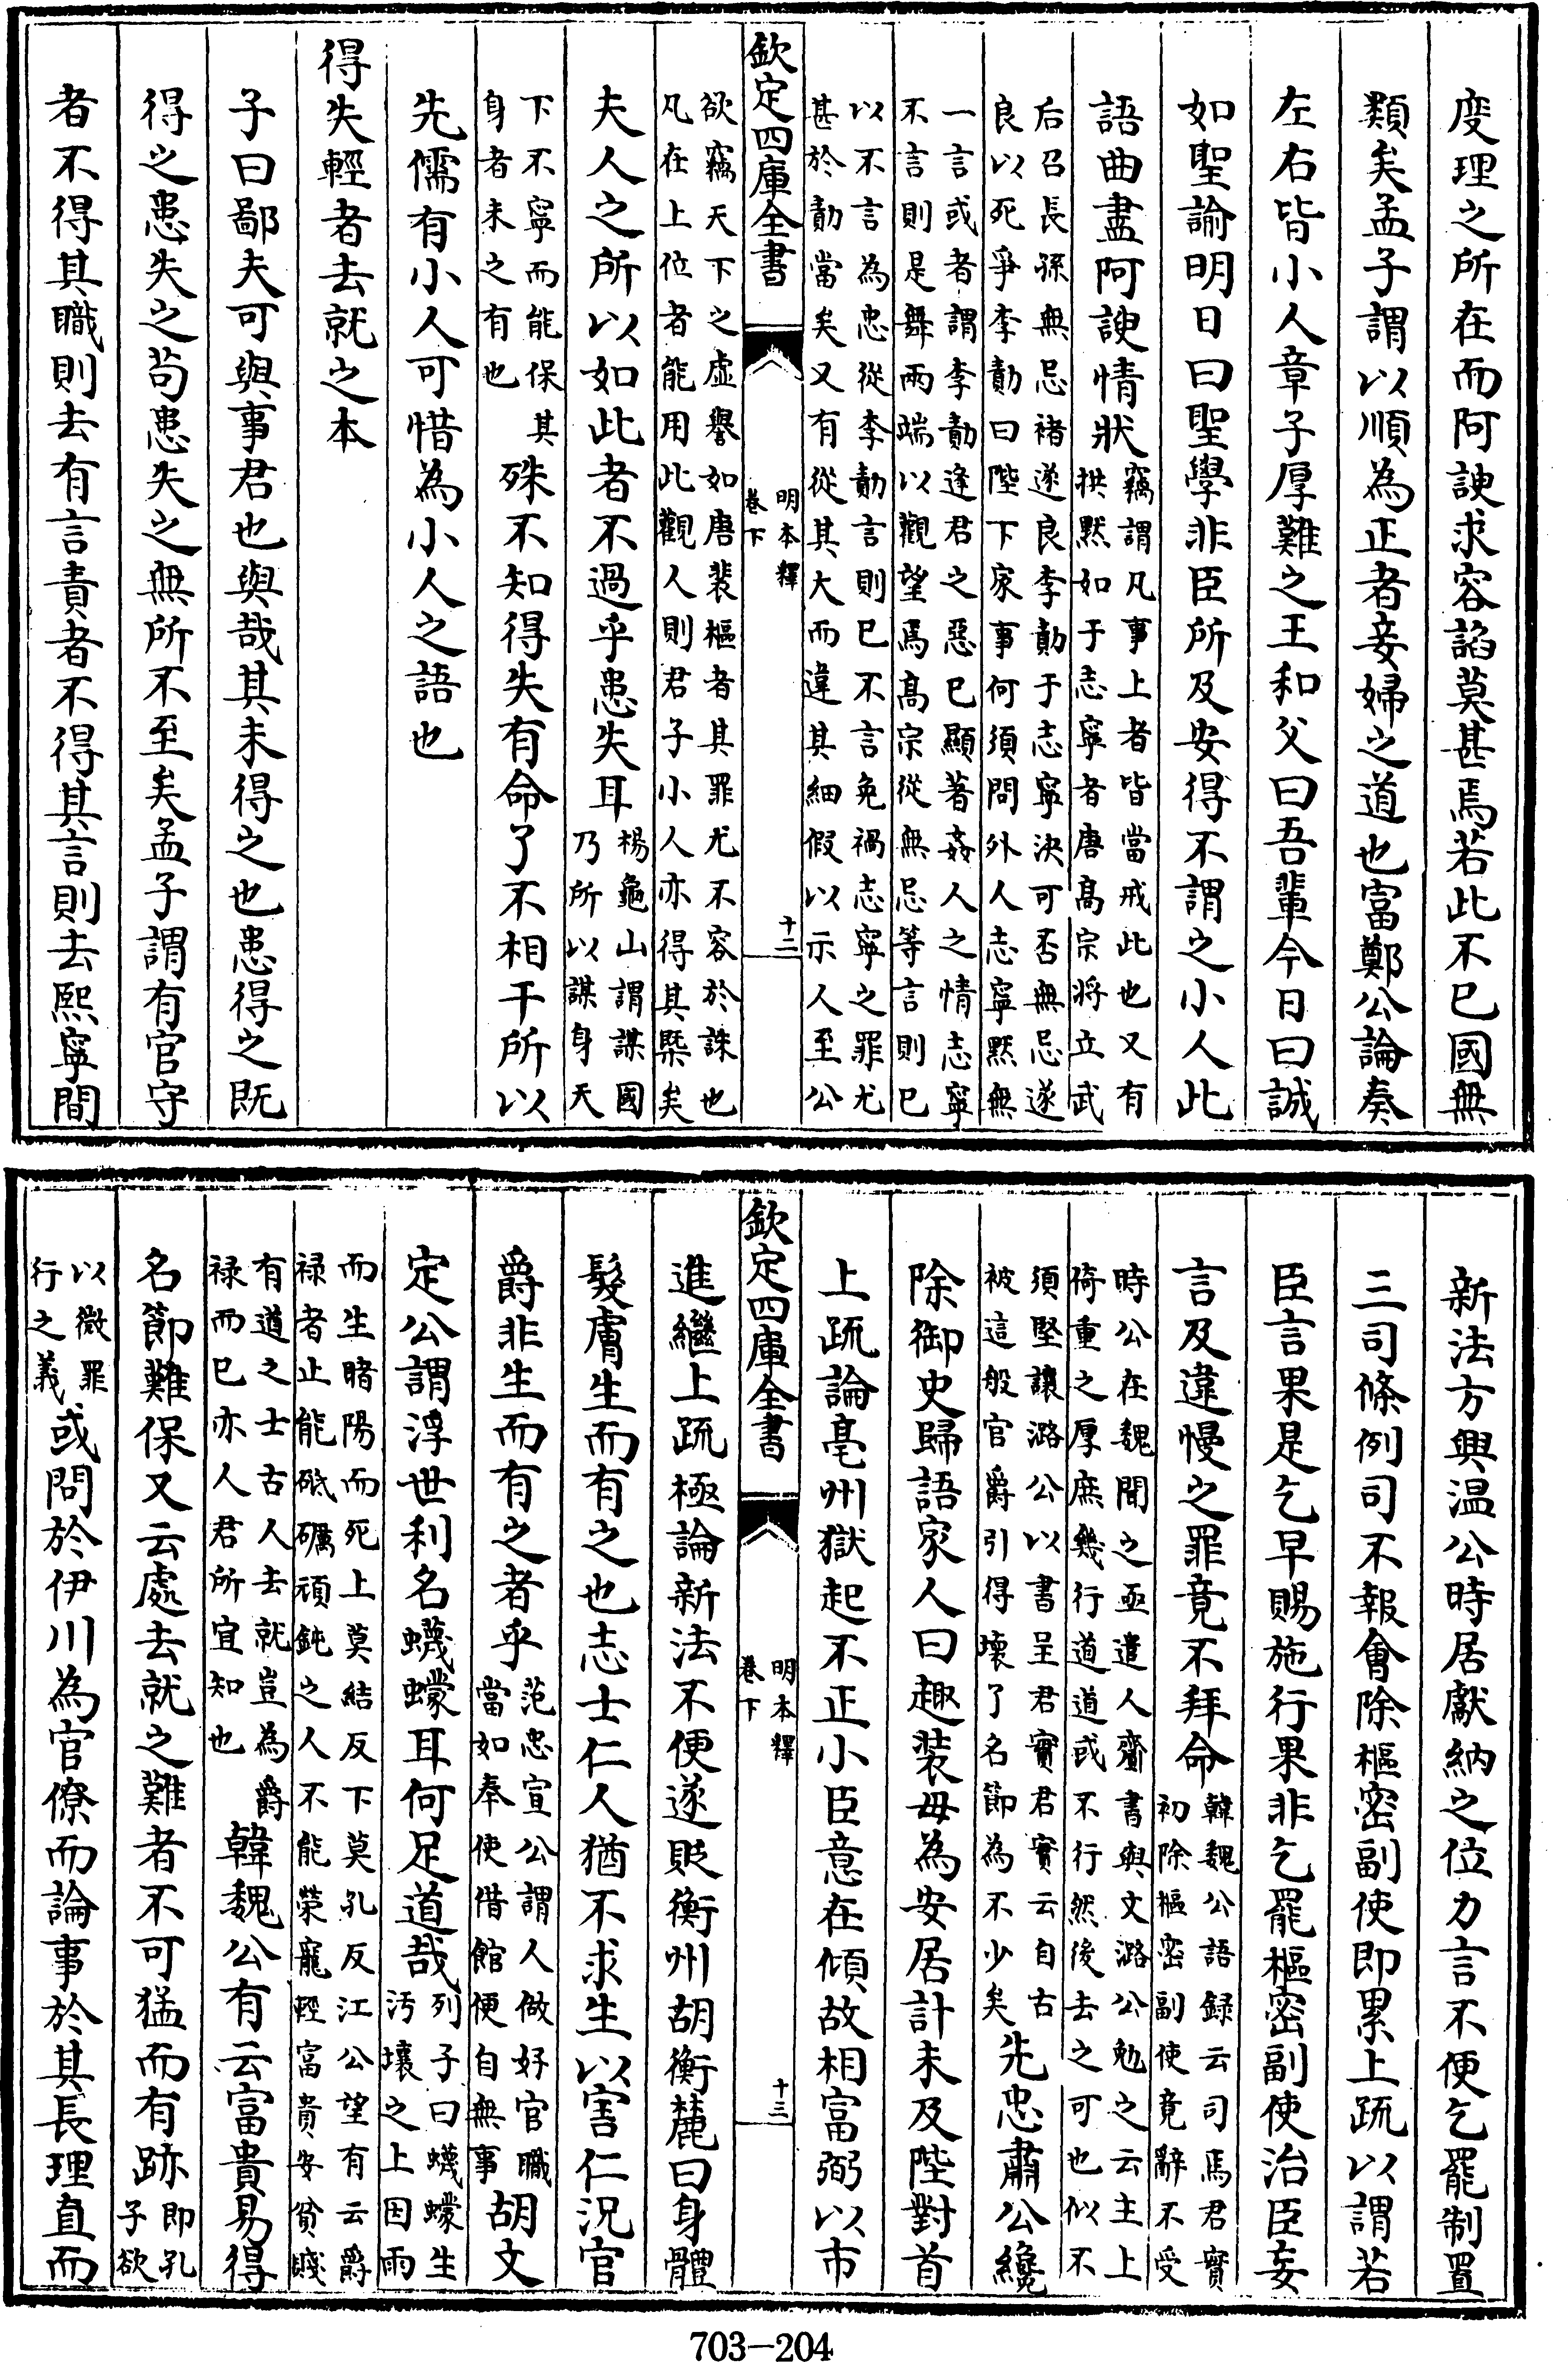 度理之所在而阿諛求容諂莫甚焉若此不已國無
類矣孟子謂以順為正者妾婦之道也富鄭公論奏
左右皆小人章子厚難之王和父曰吾輩今日曰誠
如聖諭明日曰聖學非臣所及安得不謂之小人此
語曲盡阿諛情狀竊謂凡事上者皆當戒此也又有
拱默如于志寧者唐高宗將立武
后召長孫無忌褚遂良李勣于志寧決可否無忌遂
良以死爭李勣曰陛下家事何須問外人志寧默無
一言或者謂李勣逢君之惡已顯著姦人之情志寧
不言則是舞兩端以觀望焉高宗從無忌等言則已
以不言為忠從李勣言則已不言免禍志寧之罪尤
甚於勣當矣又有從其大而違其細假以示人至公
欽定四庫全書
明本釋
卷下
十二
欲竊天下之虛譽如唐裴樞者其罪尤不容於誅也
凡在上位者能用此觀人則君子小人亦得其槩矣
夫人之所以如此者不過乎患失耳楊龜山謂謀國
乃所以謀身天
下不寧而能保其
身者未之有也
殊不知得失有命了不相干所以
先儒有小人可惜為小人之語也
得失輕者去就之本
子曰鄙夫可與事君也與哉其未得之也患得之既
得之患失之苟患失之無所不至矣孟子謂有官守
者不得其職則去有言責者不得其言則去熙寧間
新法方興温公時居獻納之位力言不便乞罷制置
三司條例司不報會除樞密副使即累上疏以謂若
臣言果是乞早賜施行果非乞罷樞密副使治臣妄
言及違慢之罪竟不拜命韓魏公語録云司馬君實
初除樞密副使竟辭不受
時公在魏聞之亟遣人齎書與文潞公勉之云主上
倚重之厚庶幾行道道或不行然後去之可也似不
須堅讓潞公以書呈君實君實云自古
被這般官爵引得壞了名節為不少矣
先忠肅公纔
除御史歸語家人曰趣装毋為安居計未及陛對首
上疏論亳州獄起不正小臣意在傾故相富弼以市
欽定四庫全書
明本釋
卷下
十三
進繼上疏極論新法不便遂貶衡州胡衡麓曰身體
髮膚生而有之也志士仁人猶不求生以害仁況官
爵非生而有之者乎范忠宣公謂人做好官職
當如奉使借館便自無事
胡文
定公謂浮世利名蠛蠓耳何足道哉列子曰蠛蠓生
汚壤之上因雨
而生睹陽而死上莫結反下莫孔反江公望有云爵
禄者止能砥礪頑鈍之人不能榮寵輕富貴安貧賤
有道之士古人去就豈為爵
禄而已亦人君所宜知也
韓魏公有云富貴易得
名節難保又云處去就之難者不可猛而有跡即孔
子欲
以微罪
行之義
或問於伊川為官僚而論事於其長理直而
703—204